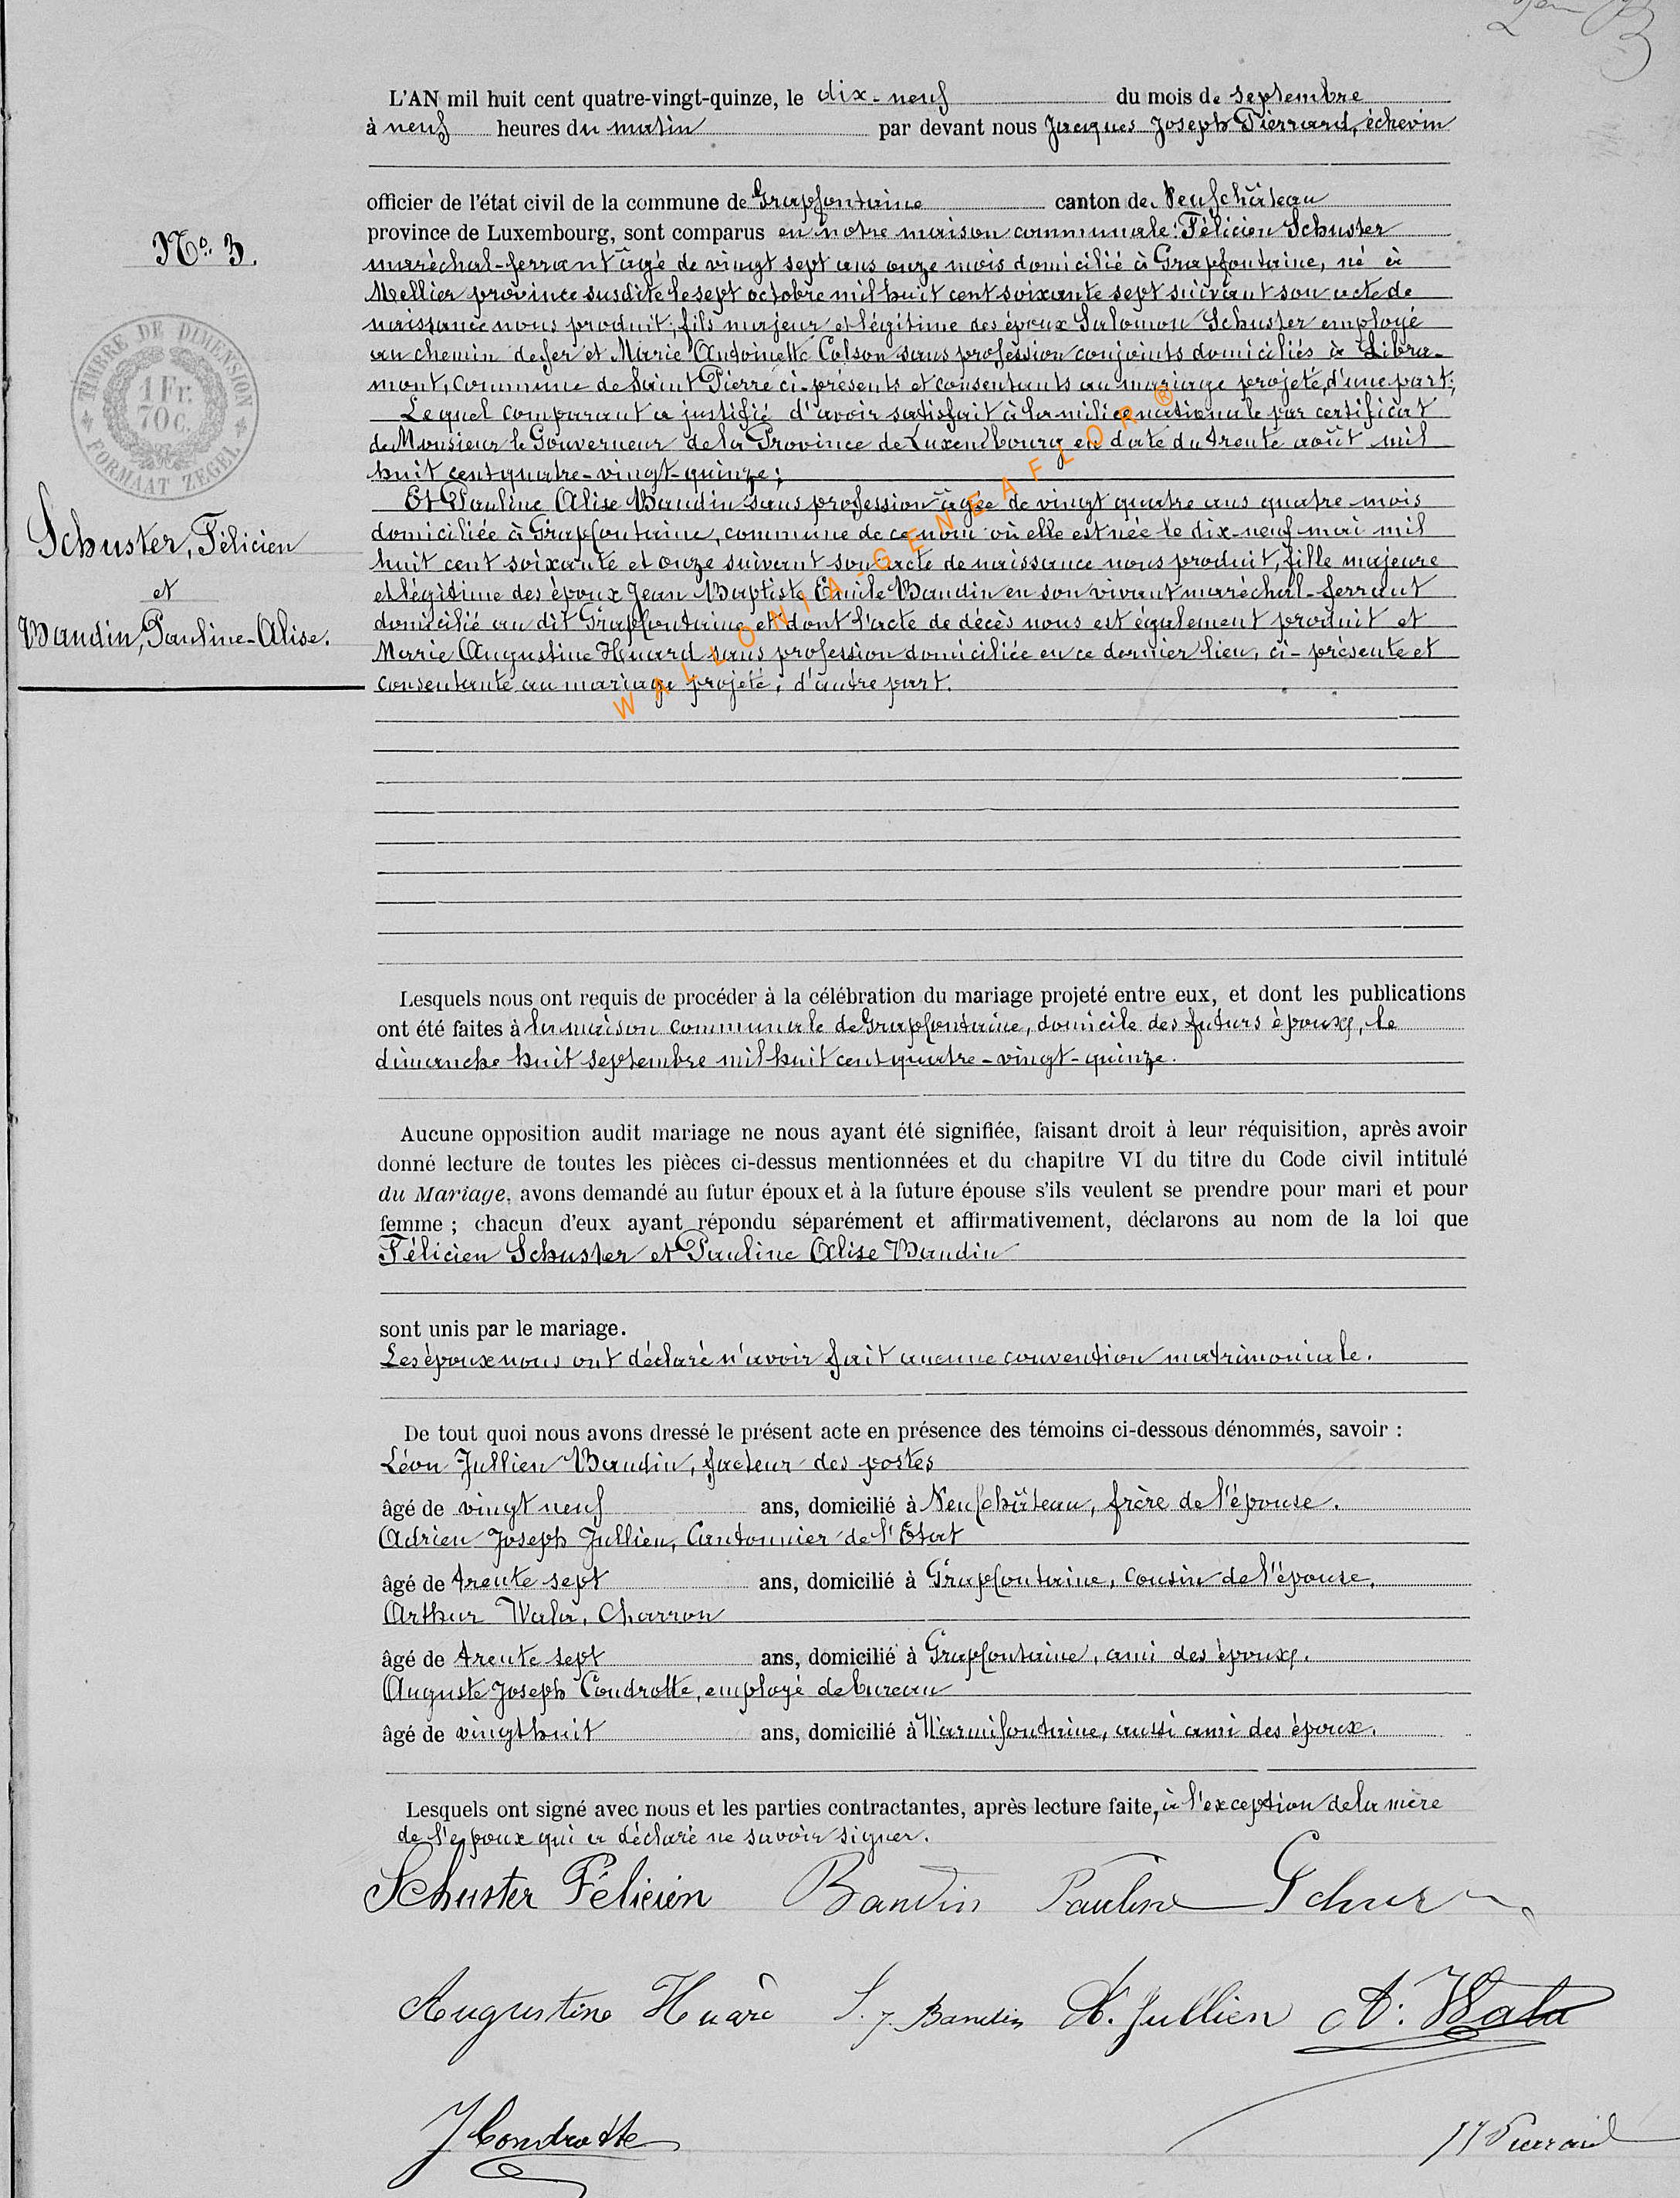 L'AN mil huit cent quatre-vingt-quinze, le dix-neuf du mois de septembre
à neuf heures du matin par devant nous Jacques Joseph Pierrard, échevin
officier de l'état civil de la commune de Grapfontaine canton de Neufchâteau
province de Luxembourg, sont comparus en notre maison communale: Félicien Schuster
maréchal-ferrant âgé de vingt sept ans onze mois domicilié à Grapfontaine, né à
Mellier province susdite le sept octobre mil huit cent soixante sept suivant son acte de
naissance nous produit, fils majeur et légitime des époux Salomon Schuster employé
au chemin de fer et Marie Antoinette Colson sans profession conjoints domiciliés à Libra-
mont, commune de Saint Pierre ci-présents et consentants au mariage projeté, d'une part;
Lequel comparant a justifié d'avoir satisfait à la milice nationale par certificat
de Monsieur le Gouverneur de la Province de Luxembourg en date du trente août mil
huit cent quatre-vingt-quinze;
Et Pauline Alise Baudin sans profession âgée de vingt quatre ans quatre mois
domiciliée à Grapfontaine, commune de ce nom où elle est née le dix-neuf mai mil
huit cent soixante et onze suivant son acte de naissance nous produit, fille majeure
et légitime des époux Jean Baptiste Emile Baudin en son vivant maréchal-ferrant
domicilié au dit Grapfontaine et dont l'acte de décès nous est également produit et
Marie Augustine Huard sans profession domiciliée en ce dernier lieu, ci-présente et
consentante au mariage projeté, d'autre part.
WALLONIA-GENEAFLOR®
No. 3.
TIMBRE DE DIMENSION
1 Fr.
70 c.
FORMAAT ZEGEL
Schuster, Félicien
et
Baudin, Pauline-Alise.
Lesquels nous ont requis de procéder à la célébration du mariage projeté entre eux, et dont les publications
ont été faites à la maison communale de Grapfontaine, domicile des futurs époux, le
dimanche huit septembre mil huit cent quatre-vingt-quinze.
Aucune opposition audit mariage ne nous ayant été signifiée, faisant droit à leur réquisition, après avoir
donné lecture de toutes les pièces ci-dessus mentionnées et du chapitre VI du titre du Code civil intitulé
du Mariage, avons demandé au futur époux et à la future épouse s'ils veulent se prendre pour mari et pour
femme ; chacun d'eux ayant répondu séparément et affirmativement, déclarons au nom de la loi que
Félicien Schuster et Pauline Alise Baudin
sont unis par le mariage.
Les époux nous ont déclaré n'avoir fait aucune convention matrimoniale.
De tout quoi nous avons dressé le présent acte en présence des témoins ci-dessous dénommés, savoir :
Léon Jullien Baudin, facteur des postes
âgé de vingt neuf ans, domicilié à Neufchâteau, frère de l'épouse.
Adrien Joseph Jullien, Cantonnier de l'Etat
âgé de trente sept ans, domicilié à Grapfontaine, cousin de l'épouse.
Arthur Wala, Charron
âgé de trente sept ans, domicilié à Grapfontaine, ami des époux.
Auguste Joseph Condrotte, employé de bureau
âgé de vingt huit ans, domicilié à Warmifontaine, aussi ami des époux.
Lesquels ont signé avec nous et les parties contractantes, après lecture faite, à l'exception de la mère
de l'époux qui a déclaré ne savoir signer.
Schuster Félicien Baudin Pauline
Augustine Huard L. J. Baudin A. Jullien A. Wala
J Condrotte JJ Pierrard